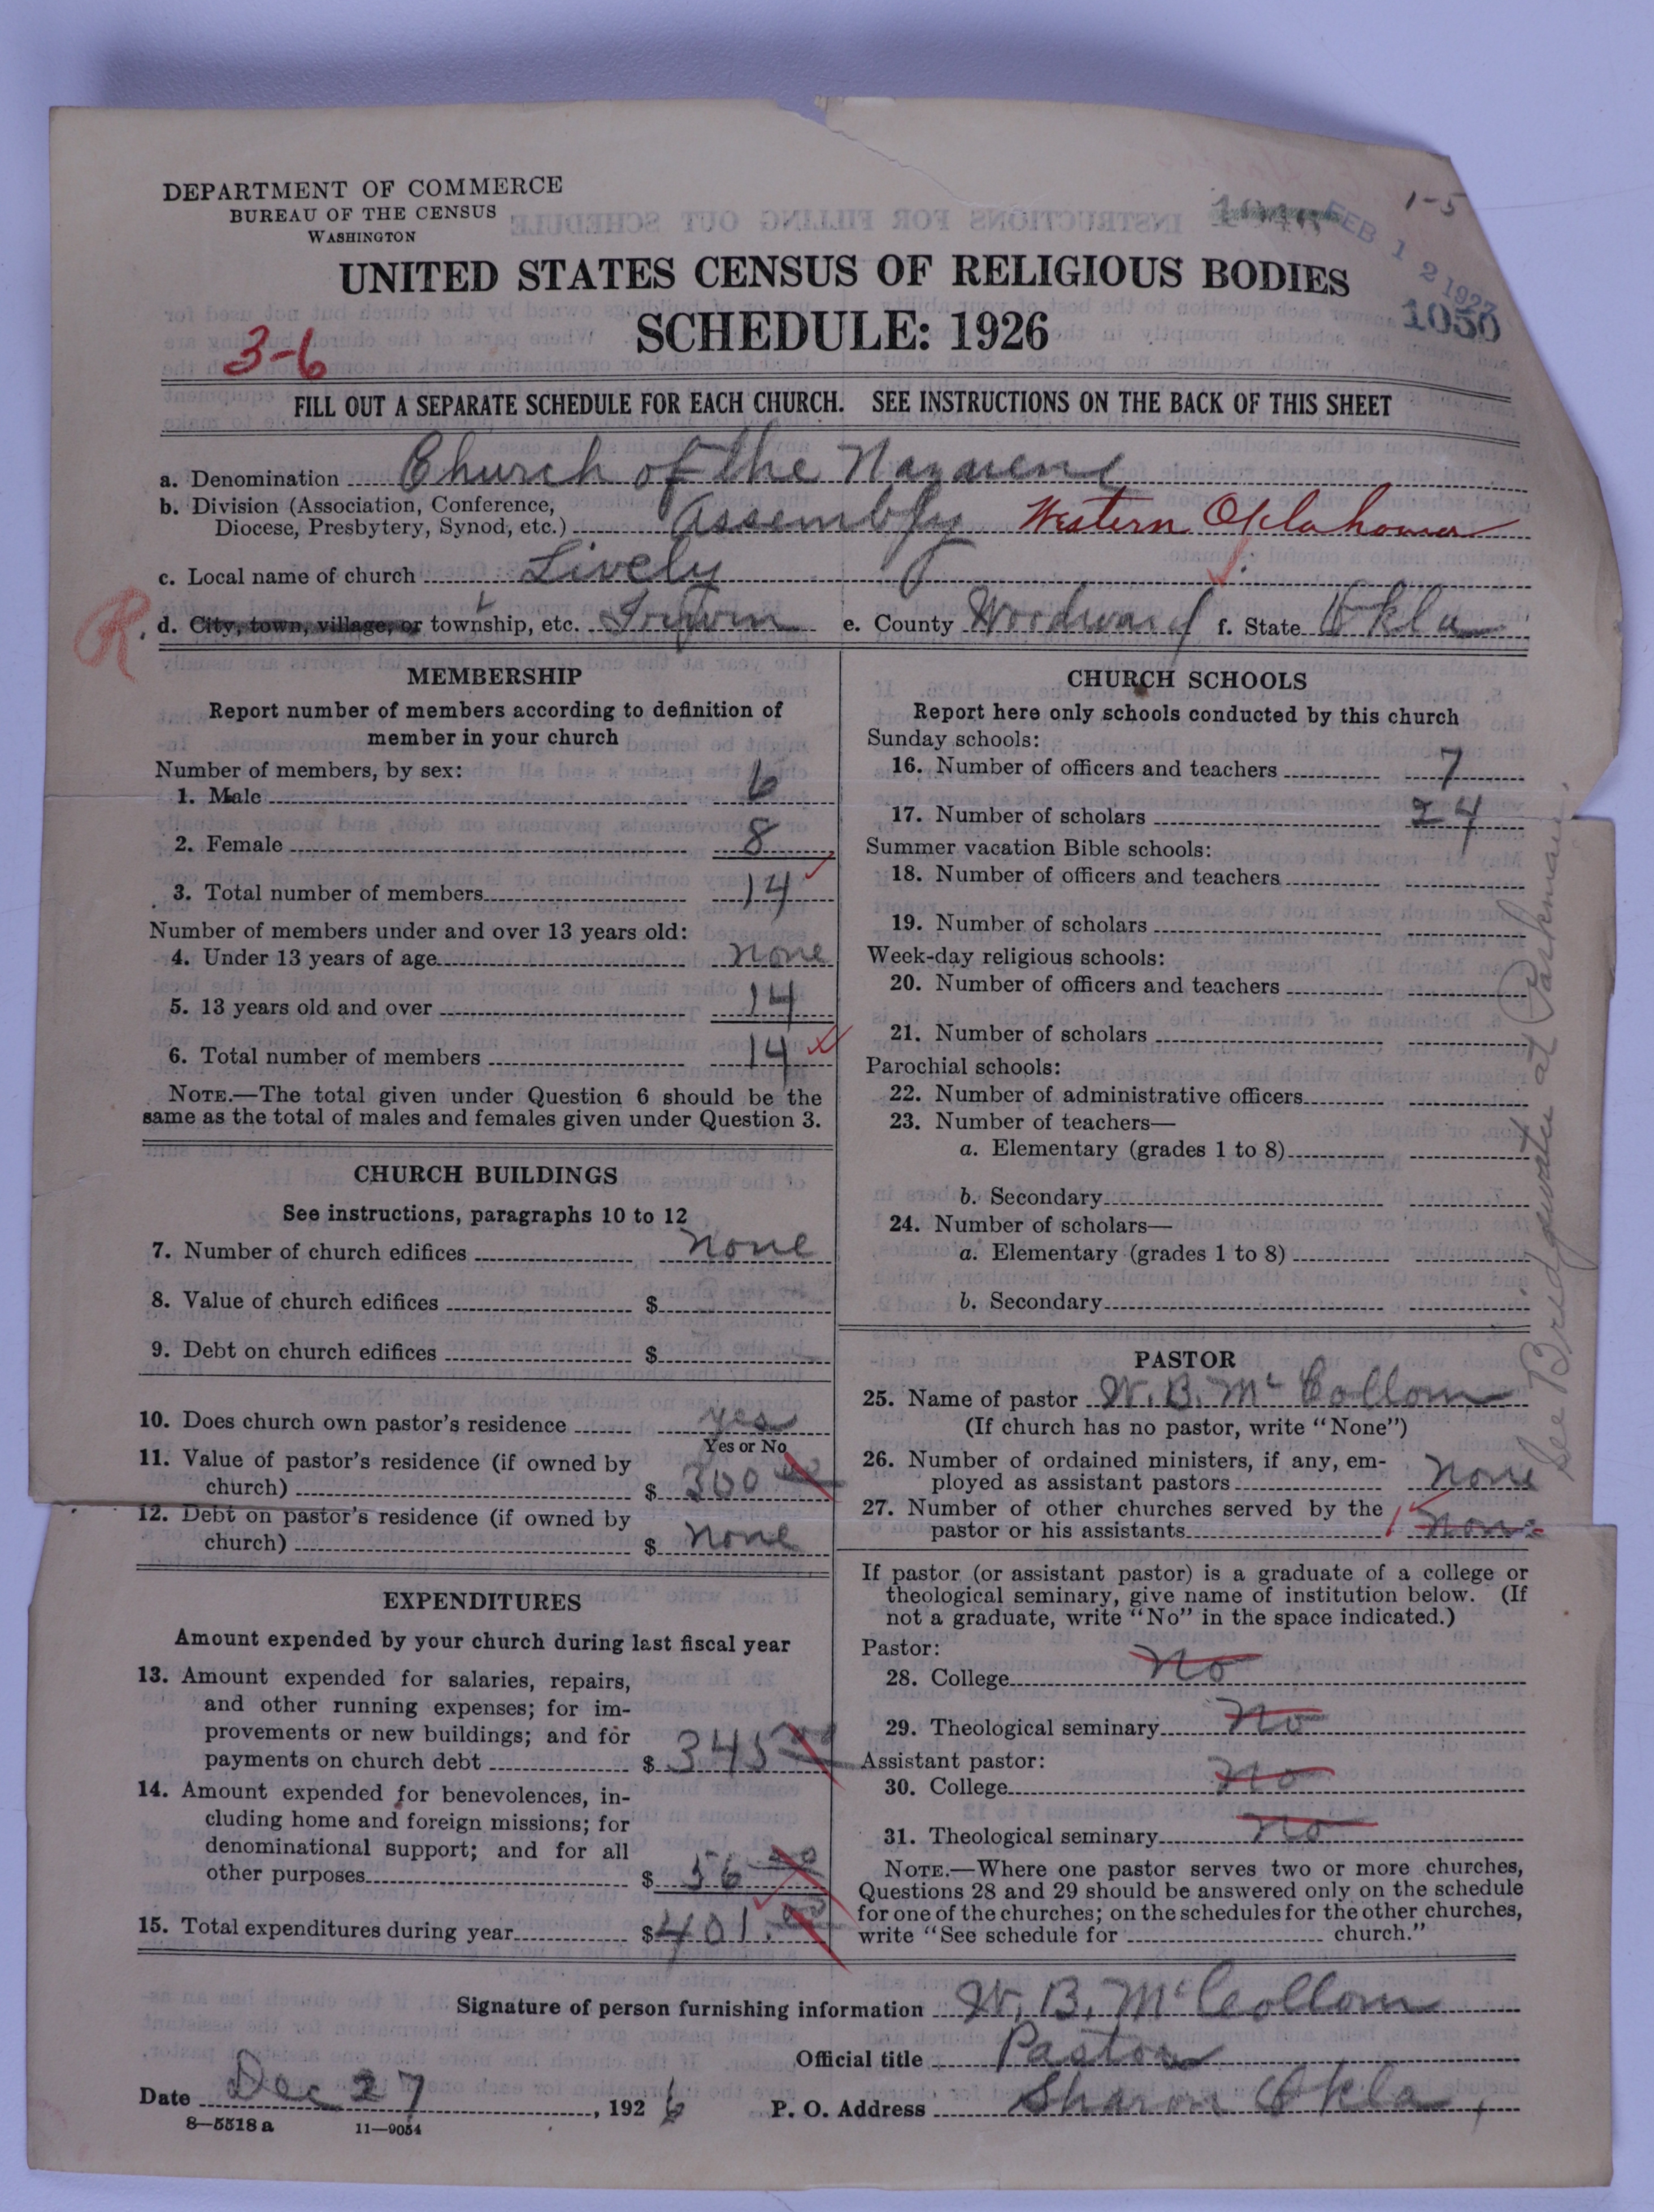 DEPARTMENT OF COMMERCE
BUREAU OF THE CENSUS
WASHINGTON
1-5
FEB 12 1927
1050
UNITED STATES CENSUS OF RELIGIOUS BODIES
SCHEDULE: 1926
3-6
FILL OUT A SEPARATE SCHEDULE FOR EACH CHURCH. SEE INSTRUCTIONS ON THE BACK OF THIS SHEET
a. Denomination Church of the Nazarene
b. Division (Association, Conference,
Diocese, Presbytery, Synod, etc.) Assembly Western Oklahoma
c. Local name of church Lively
R
d. City, town, village, or township, etc. e. County Woodward f. State Okla
MEMBERSHIP
Report number of members according to definition of
member in your church
Number of members, by sex:
1. Male 6
2. Female 8
3. Total number of members 14
Number of members under and over 13 years old:
4. Under 13 years of age none
5. 13 years old and over 14
6. Total number of members 14
NOTE.—The total given under Question 6 should be the
same as the total of males and females given under Question 3.
CHURCH BUILDINGS
See instructions, paragraphs 10 to 12
7. Number of church edifices none
8. Value of church edifices $
9. Debt on church edifices $
10. Does church own pastor's residence yes
Yes or No
11. Value of pastor's residence (if owned by
church) $ 300 00
12. Debt on pastor's residence (if owned by
church) $ none
EXPENDITURES
Amount expended by your church during last fiscal year
13. Amount expended for salaries, repairs,
and other running expenses; for im-
provements or new buildings; and for
payments on church debt $ 345
14. Amount expended for benevolences, in-
cluding home and foreign missions; for
denominational support; and for all
other purposes $ 56
15. Total expenditures during year $ 401.
CHURCH SCHOOLS
Report here only schools conducted by this church
Sunday schools:
16. Number of officers and teachers 7
17. Number of scholars 24
Summer vacation Bible schools:
18. Number of officers and teachers
19. Number of scholars
Week-day religious schools:
20. Number of officers and teachers
21. Number of scholars
Parochial schools:
22. Number of administrative officers
23. Number of teachers—
a. Elementary (grades 1 to 8)
b. Secondary
24. Number of scholars—
a. Elementary (grades 1 to 8)
b. Secondary
PASTOR
25. Name of pastor W. B. McCollom
(If church has no pastor, write "None")
26. Number of ordained ministers, if any, em-
ployed as assistant pastors none
27. Number of other churches served by the
pastor or his assistants 1 none
If pastor (or assistant pastor) is a graduate of a college or
theological seminary, give name of institution below. (If
not a graduate, write "No" in the space indicated.)
Pastor:
28. College No
29. Theological seminary No
Assistant pastor:
30. College No
31. Theological seminary No
NOTE.—Where one pastor serves two or more churches,
Questions 28 and 29 should be answered only on the schedule
for one of the churches; on the schedules for the other churches,
write "See schedule for church."
See Bridgewater at Parkman
Signature of person furnishing information W. B. McCollom
Official title Pastor
Date Dec 27, 1926 P. O. Address Sharon Okla,
8—5518 a 11—9054